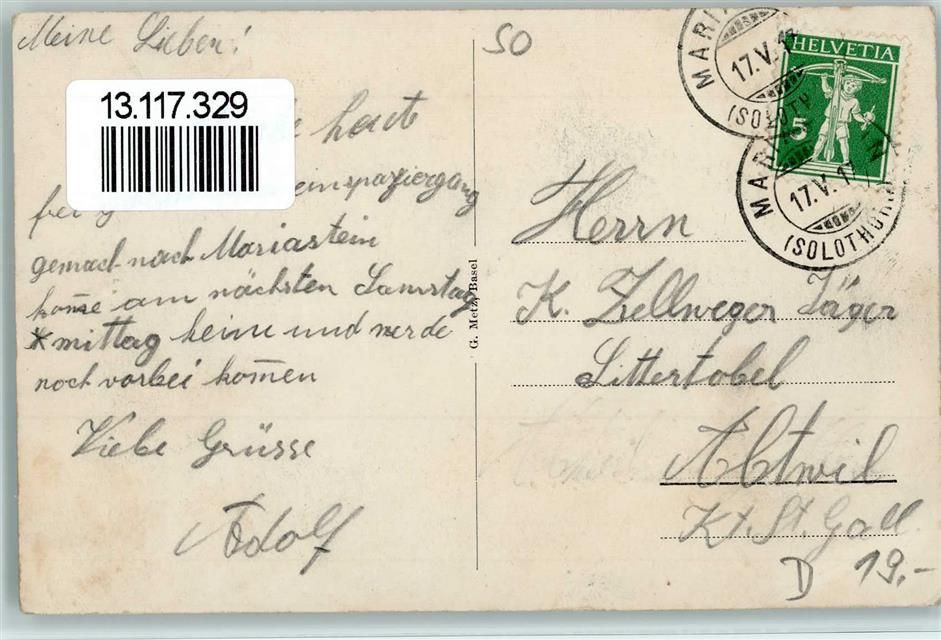 Meine Lieben!
13.117.329
heute
frei
emspaziergang
gemacht nach Mariastein
kom̄e am nächsten Samstag
mittag heim und werde
noch vorbei kom̄en
Liebe Grüsse
Adolf
G. Metz, Basel
SO
HELVETIA
5
17.V.1
(SOLOTH
17.V.1
(SOLOTHURN)
Herrn
K. Zellweger Jäger
Sittertobel
Abtwil
Kt. St. Gall.
D 19.-